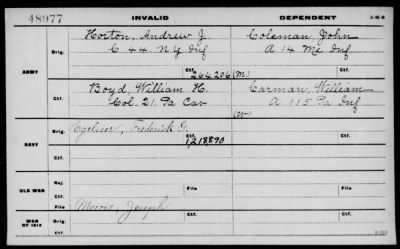 48977
INVALID
DEPENDENT
3-21-8
Horton, Andrew J.
Coleman, John
Orig.
C 44 N Y Inf
A 14 Me Inf
Ctf.
264206 (M)
ARMY
Boyd, William H.
Carman, William
Ctf.
Col. 21 Pa Cav
A 115 Pa Inf
(W)
Orig.
Frederick G.
Ctf.
Ctf.
1218890
NAVY
Ctf.
OLD WAR
Rej.
Ctf.
File
File
WAR OF 1812
Morris, Joseph
Orig.
Ctf.
Ctf.